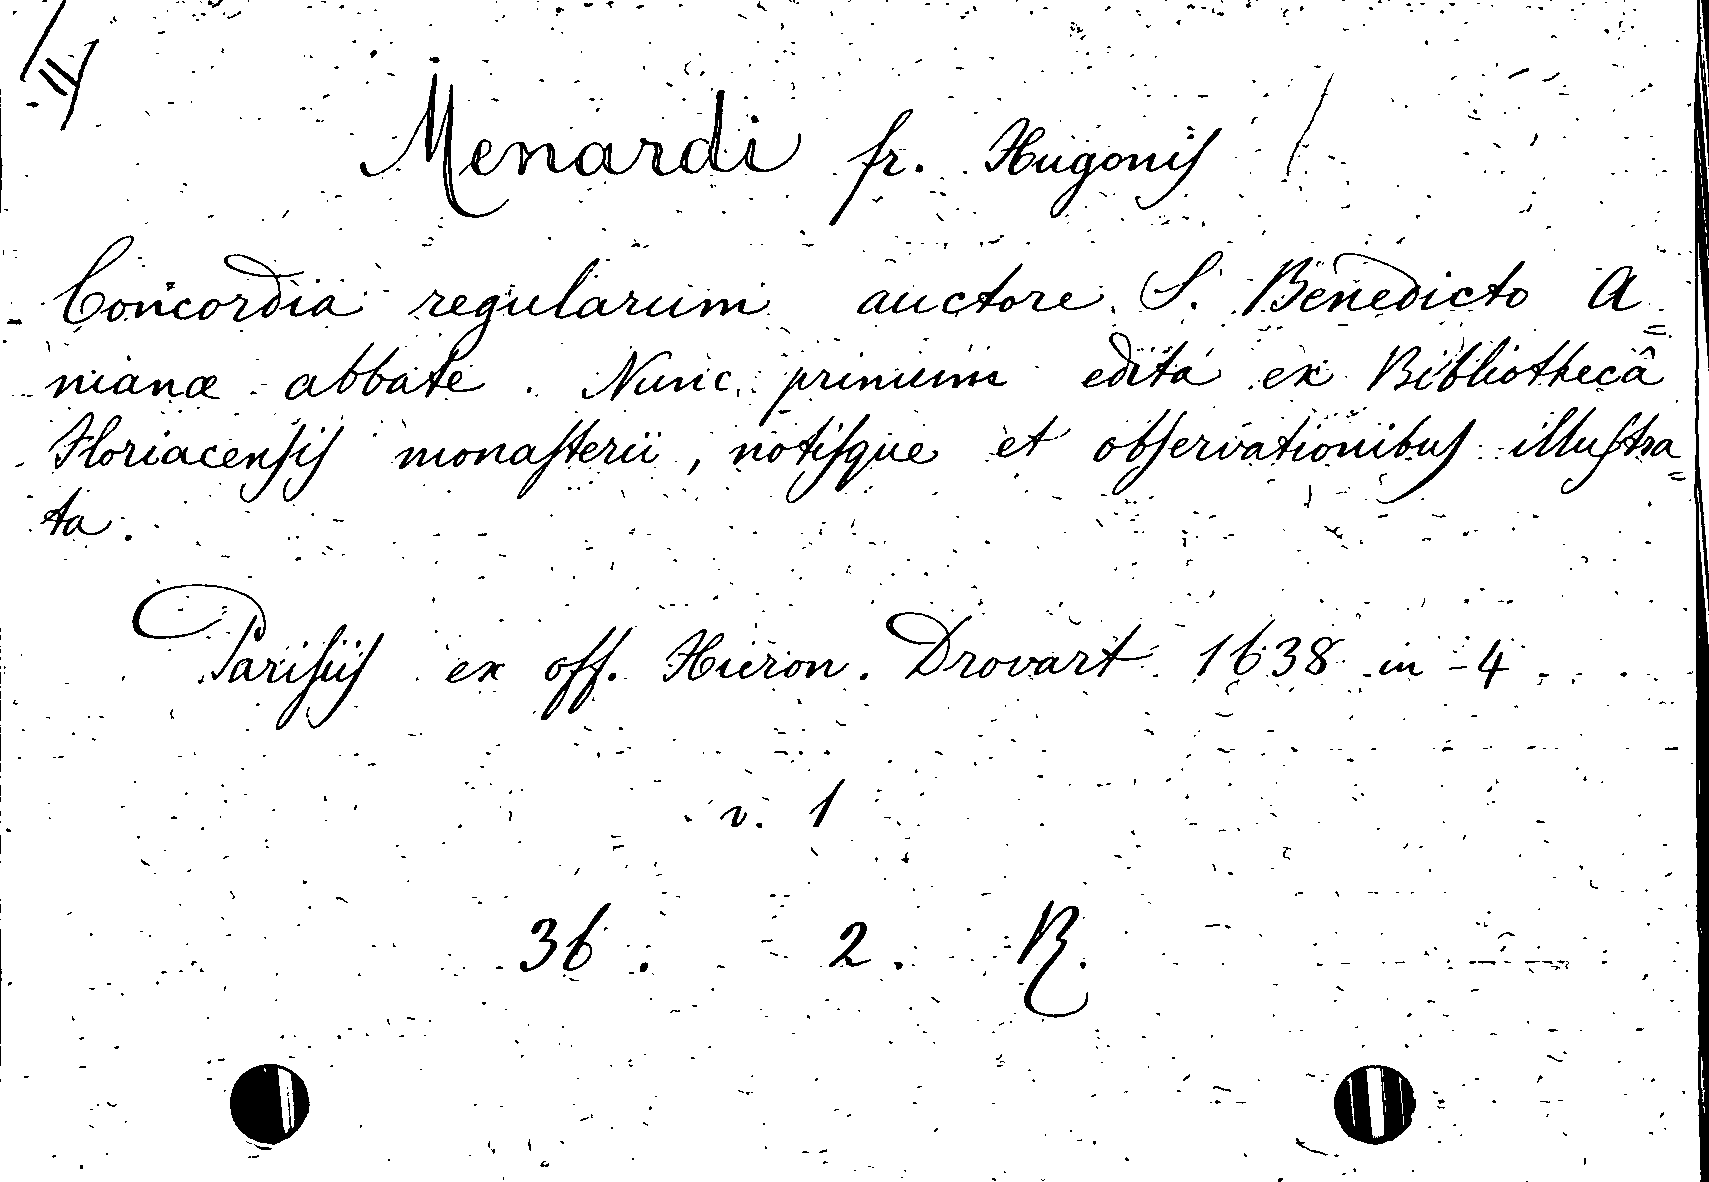 Menardi fr. Hugonis
Concordia regularum auctore S. Benedicto A=
nianæ abbate. Nunc primum edita ex Bibliothecâ
Floriacensis monasterii, notisque et observationibus illustra=
ta.
Parisiis ex off. Hieron. Drovart 1638 in-4.
v. 1
36. 2. R.